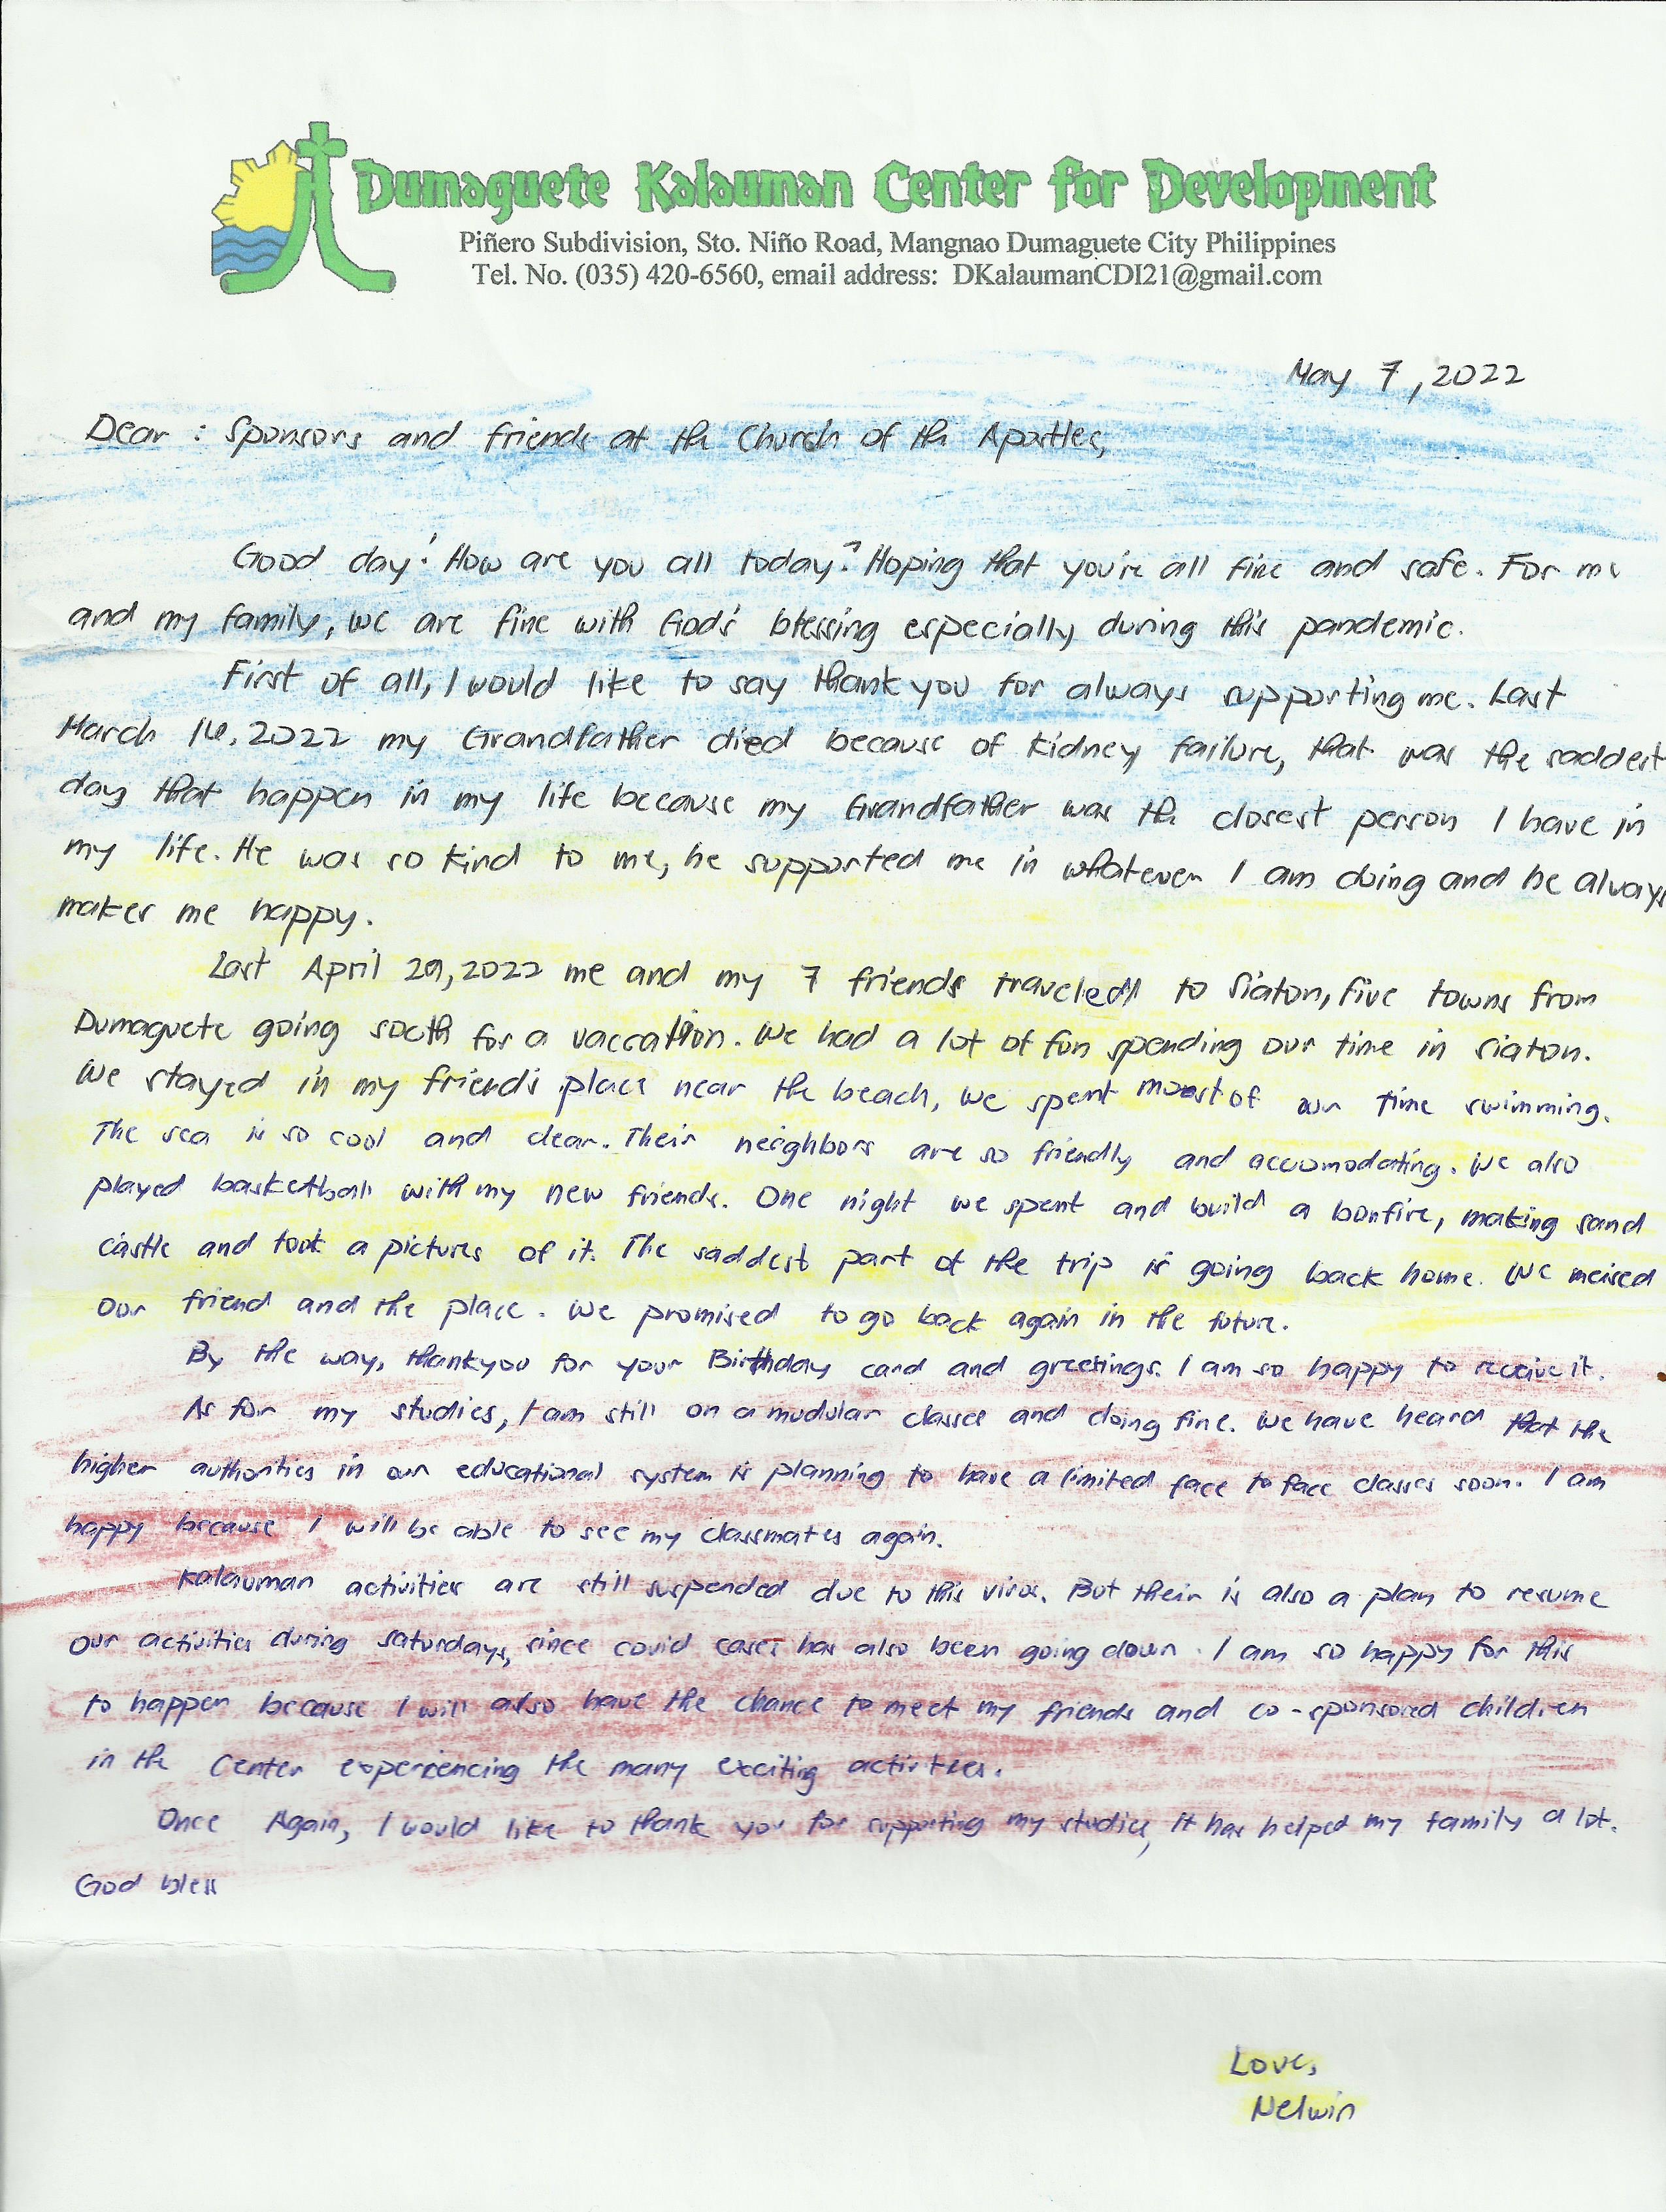 Dumaguete Kalauman Center for Development
Piñero Subdivision, Sto. Niño Road, Mangnao Dumaguete City Philippines
Tel. No. (035) 420-6560, email address: DKalaumanCDI21@gmail.com
May 7, 2022
Dear : Sponsors and friends at the Church of the Apostles,
Good day! How are you all today? Hoping that you're all fine and safe. For me
and my family, we are fine with God's blessing especially during this pandemic.
First of all, I would like to say thank you for always supporting me. Last
March 16, 2022 my Grandfather died because of kidney failure, that was the saddest
day that happen in my life because my Grandfather was the closest person I have in
my life. He was so kind to me, he supported me in whatever I am doing and he always
makes me happy.
Last April 29, 2022 me and my 7 friends traveled to Siaton, five towns from
Dumaguete going south for a vaccation. We had a lot of fun spending our time in Siaton.
We stayed in my friend's place near the beach, we spent most of our time swimming.
The sea is so cool and clear. Their neighbors are so friendly and accomodating. We also
played basketball with my new friends. One night we spent and build a bonfire, making sand
castle and took a pictures of it. The saddest part of the trip is going back home. We meised
our friend and the place. We promised to go back again in the future.
By the way, thankyou for your Birthday card and greetings. I am so happy to receive it.
As for my studies, I am still on a modular classes and doing fine. We have heard that the
higher authorities in our educational system is planning to have a limited face to face classes soon. I am
happy because I will be able to see my classmates again.
Kalauman activities are still suspended due to this virus. But their is also a plan to resume
our activities during saturdays, since covid cases has also been going down. I am so happy for this
to happen because I will also have the chance to meet my friends and co-sponsored children
in the Center experiencing the many exciting activities.
Once Again, I would like to thank you for supporting my studies, It has helped my family a lot.
God bless
Love,
Nelwin